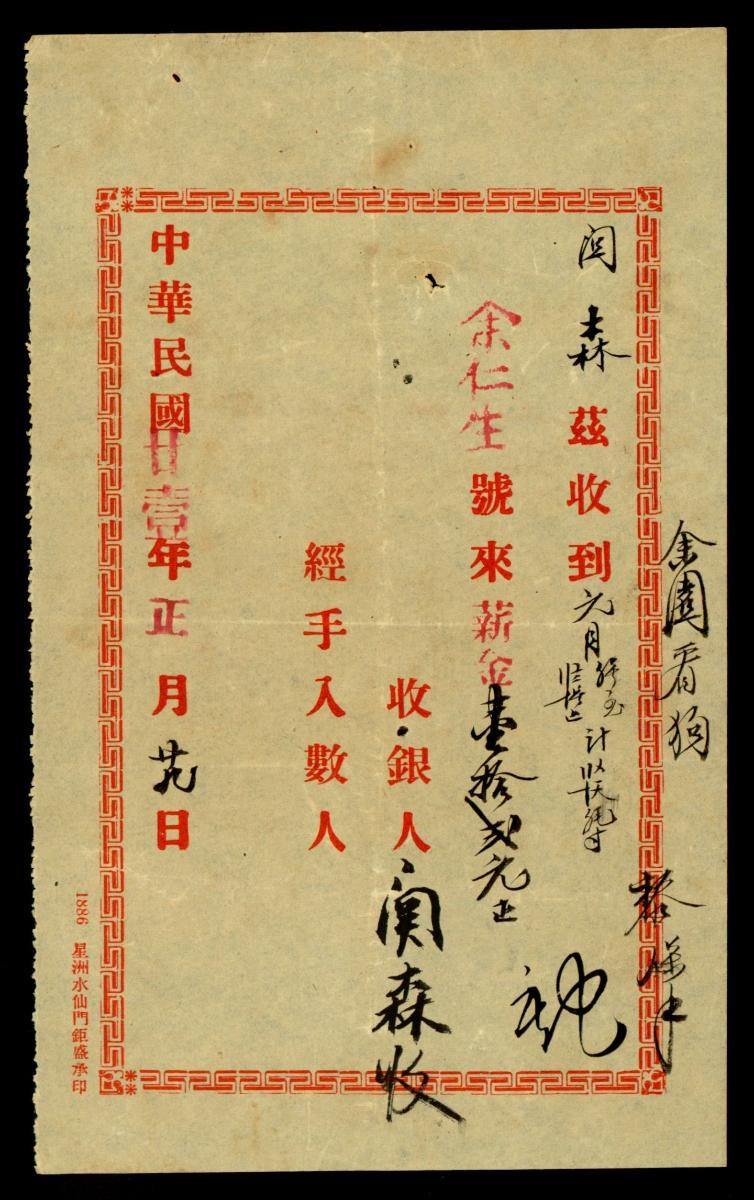 余園看狗
関森茲收到元月
計
余仁生號來薪金壹拾弍元正
收銀人関森收
經手入數人
中華民國廿壹年正月廿九日
1886 星洲水仙門鉅盛承印